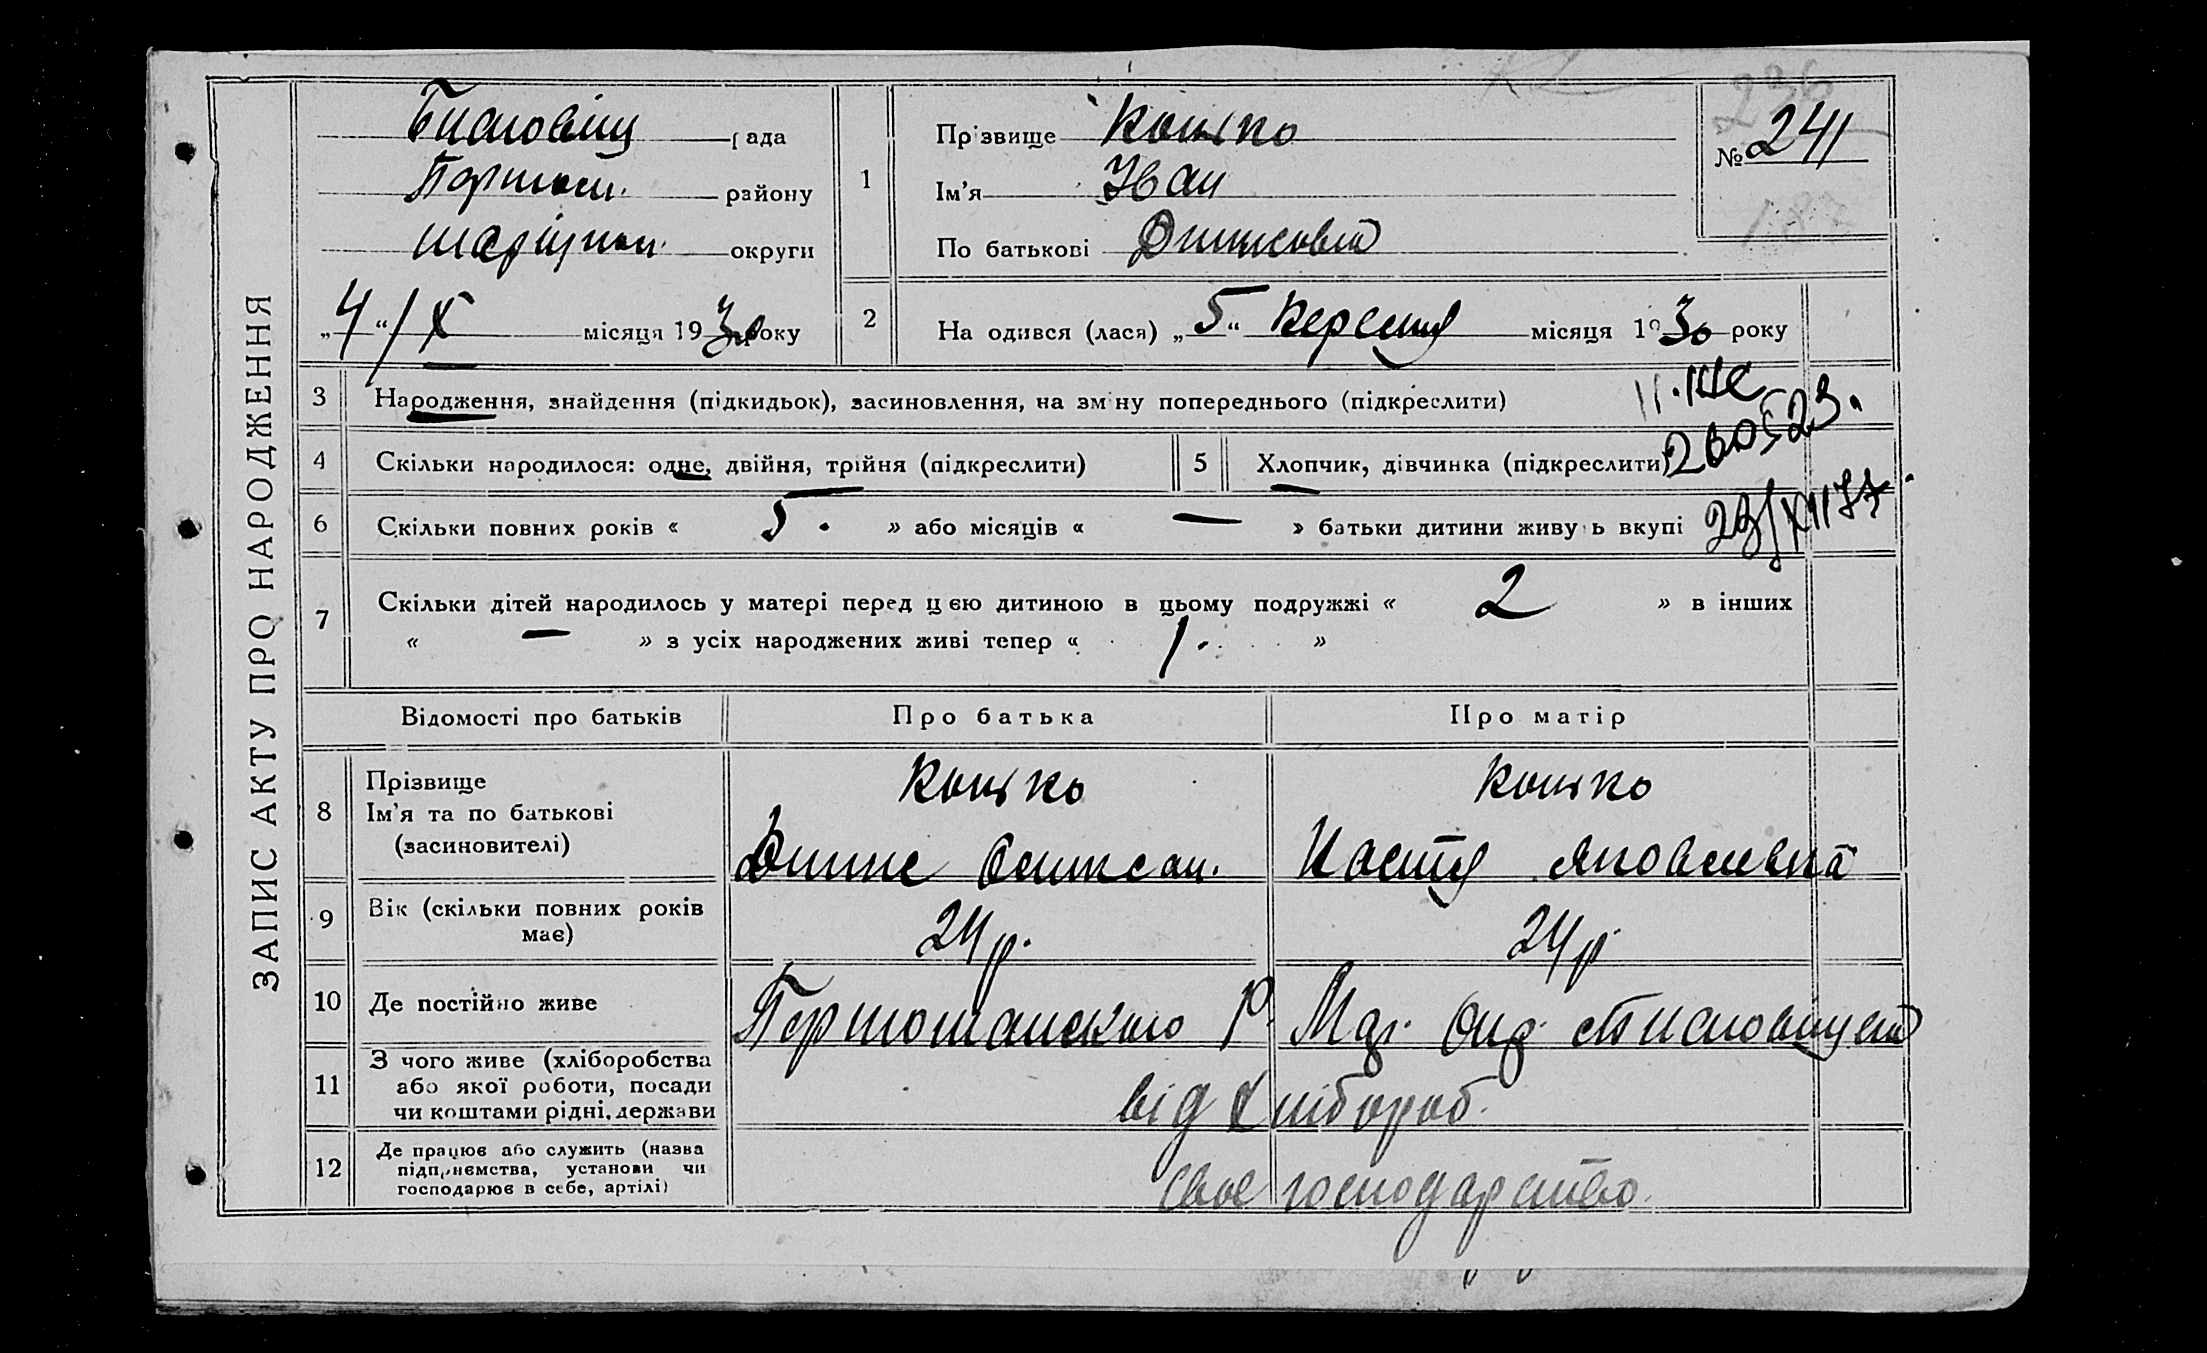 ЗАПИС АКТУ ПРО НАРОДЖЕННЯ
рада
району
округи
„4“ /X місяця 1930 року
1
Прізвище Кошко
Ім'я Іван
По батькові Дмитрович
№ 241
236
187
2
На одився (лася) „5“ Вересня місяця 1930 року
3 Народження, знайдення (підкидьок), засиновлення, на зміну попереднього (підкреслити)
4 Скільки народилося: одне, двійня, трійня (підкреслити)
5 Хлопчик, дівчинка (підкреслити)
260523.
23/XII 77.
6 Скільки повних років « 5. » або місяців « — » батьки дитини живуть вкупі
7 Скільки дітей народилось у матері перед цією дитиною в цьому подружжі « 2 » в інших
« — » з усіх народжених живі тепер « 1. »
Відомості про батьків
Про батька
Про матір
8 Прізвище
Ім'я та по батькові
(засиновителі)
Кошко
Кошко
Настя Яковлевна
9 Вік (скільки повних років має)
24 р.
24 р.
10 Де постійно живе
Р.
11 З чого живе (хліборобства або якої роботи, посади чи коштами рідні, держави
від хлібороб.
12 Де працює або служить (назва підприємства, установи чи господарює в себе, артілі)
своє господарство.